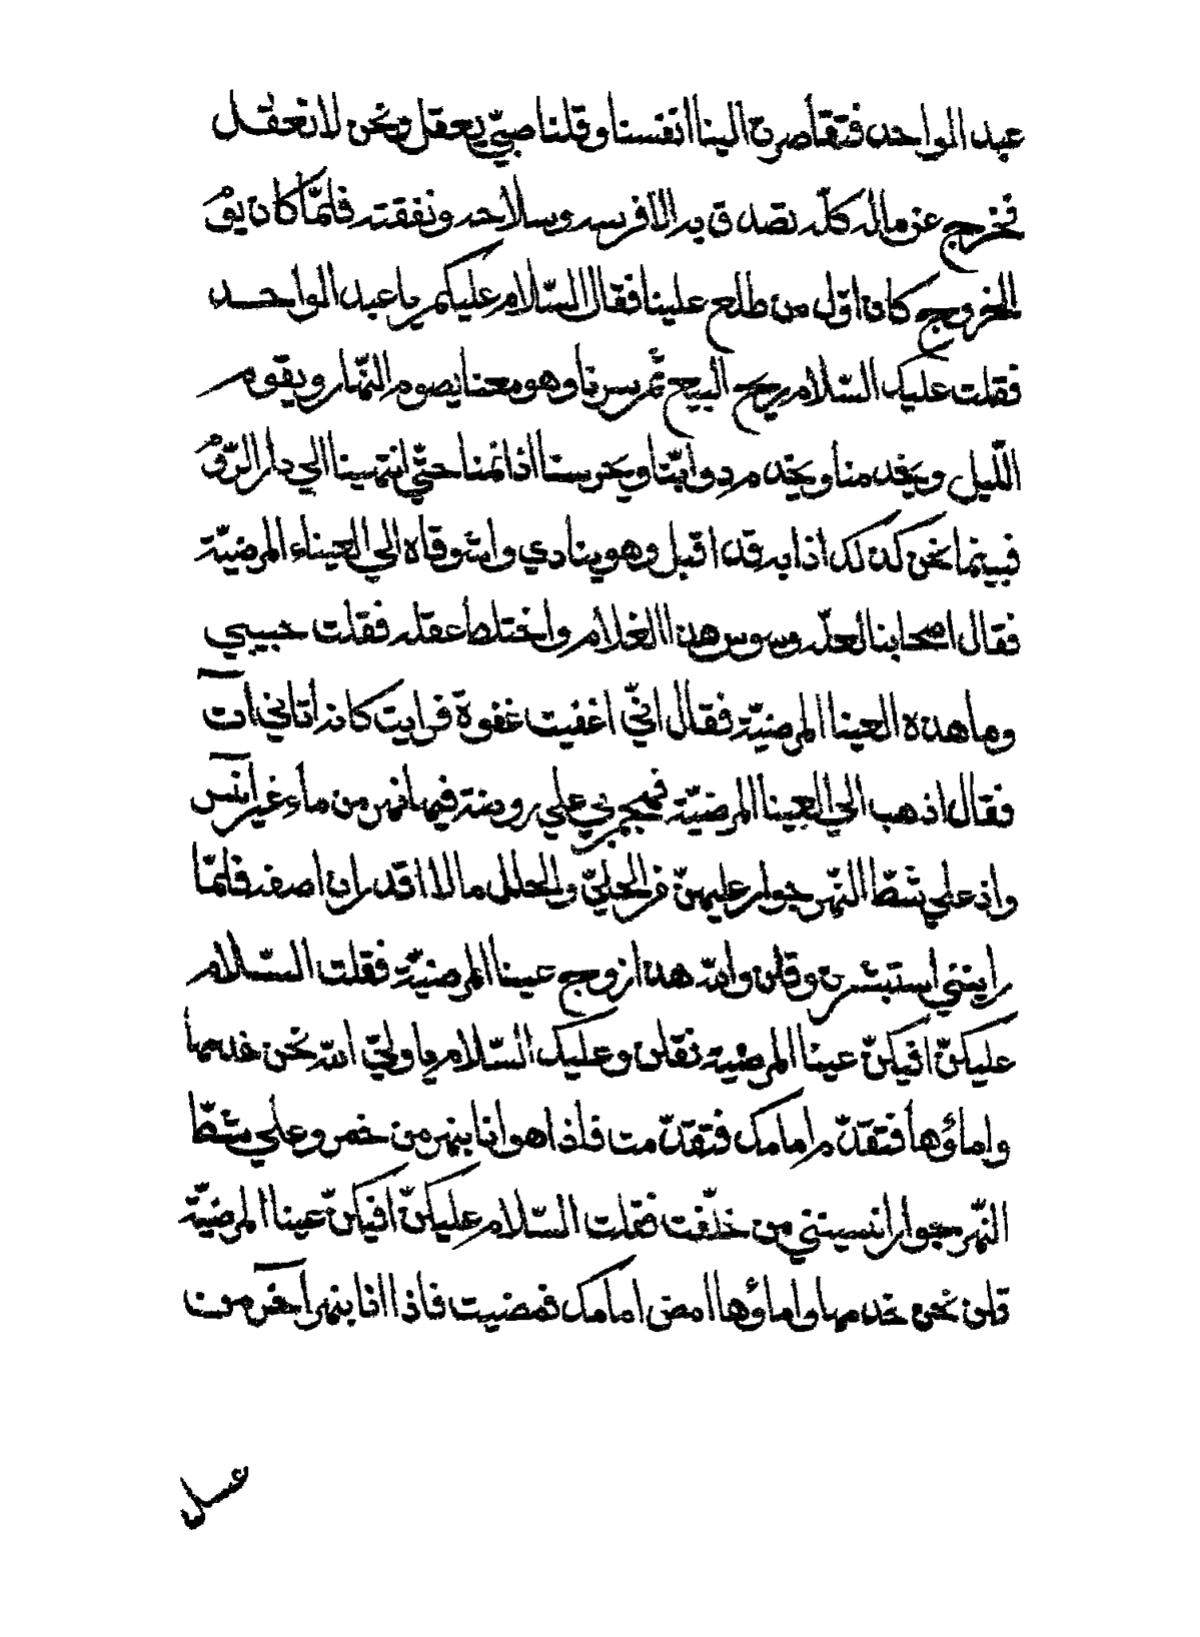 عبد الواحد فتقاصرت الينا انفسنا وقلنا صبيّ يعقل ونحن لا نعقل
فخرج عن ماله كلّه تصدق به الا فرسه وسلاحه ونفقته فلمّا كان يوْ
الخروج كان اوّل من طلع علينا فقال السّلام عليكم يا عبد الواحد
فقلت عليك السّلام ربح البيع ثمّ سرنا وهو معنا يصوم النّهار ويقوم
اللّيل ويخدمنا ويخدم دوابّنا ويحرسنا اذا نمنا حتّي انتهينا الي دار الرّوْ
فبينما نحن كذلك اذا به قد اقبل وهو ينادي واشوقاه الي العيناء المرضيّة
فقال اصحابنا لعلّه وسوس هذا الغلام واختلط عقله فقلت حبيبي
وما هذه العينا المرضيّة فقال انّي اغفيت غفوة فرايت كانه أتاني اٰت
فقال اذهب الي العينا المرضيّة فهجم بي علي روضة فيها نهر من ماءٍ غير اٰسن
واذ علي شطّ النّهر جوار عليهنّ من الحليّ والحلل ما لا اقدر ان اصفه فلمّا
راينني استبشرن وقلن والله هذا زوج عينا المرضيّة فقلت السّلام
عليكنّ افيكنّ عينا المرضية فقلن وعليك السّلام يا وليّ الله نحن خدمها
واماؤها فتقدّم امامك فتقدّمت فاذا هو انا بنهر من خمر وعلي شطّ
النّهر جوار انسينني من خلّفت فقلت السّلام عليكنّ افيكنّ عينا المرضيّة
قلن نحن خدمها واماؤها امض امامك فمضيت فاذا انا بنهر اٰخر من
عسل